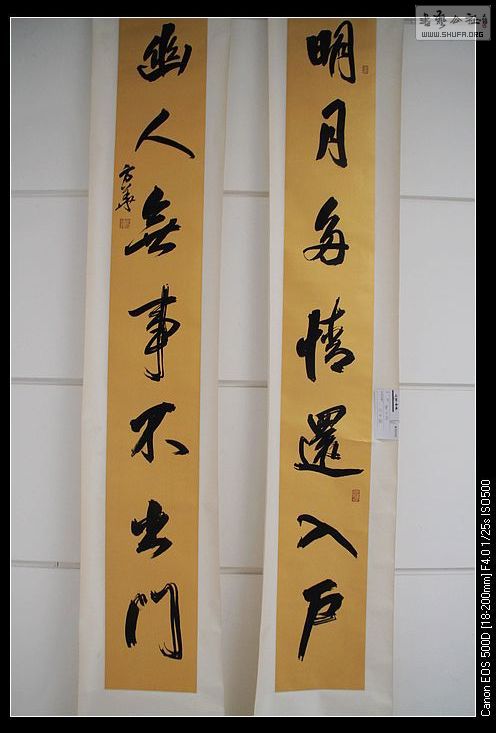 明月多情還入户
幽人無事不出門
方華
書藝公社
WWW.SHUFA.ORG
Canon EOS 500D [18-200mm] F4.0 1/25s ISO500